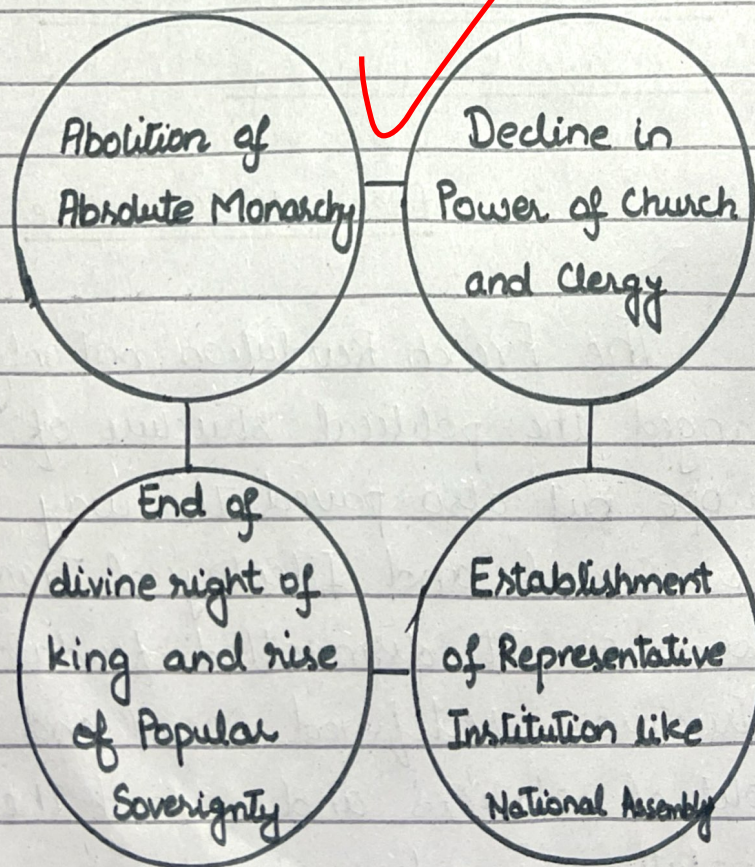 Abolition of
Absolute Monarchy
Decline in
Power of Church
and Clergy
End of
divine right of
king and rise
of Popular
Soverignty
Establishment
of Representative
Institution like
National Assembly